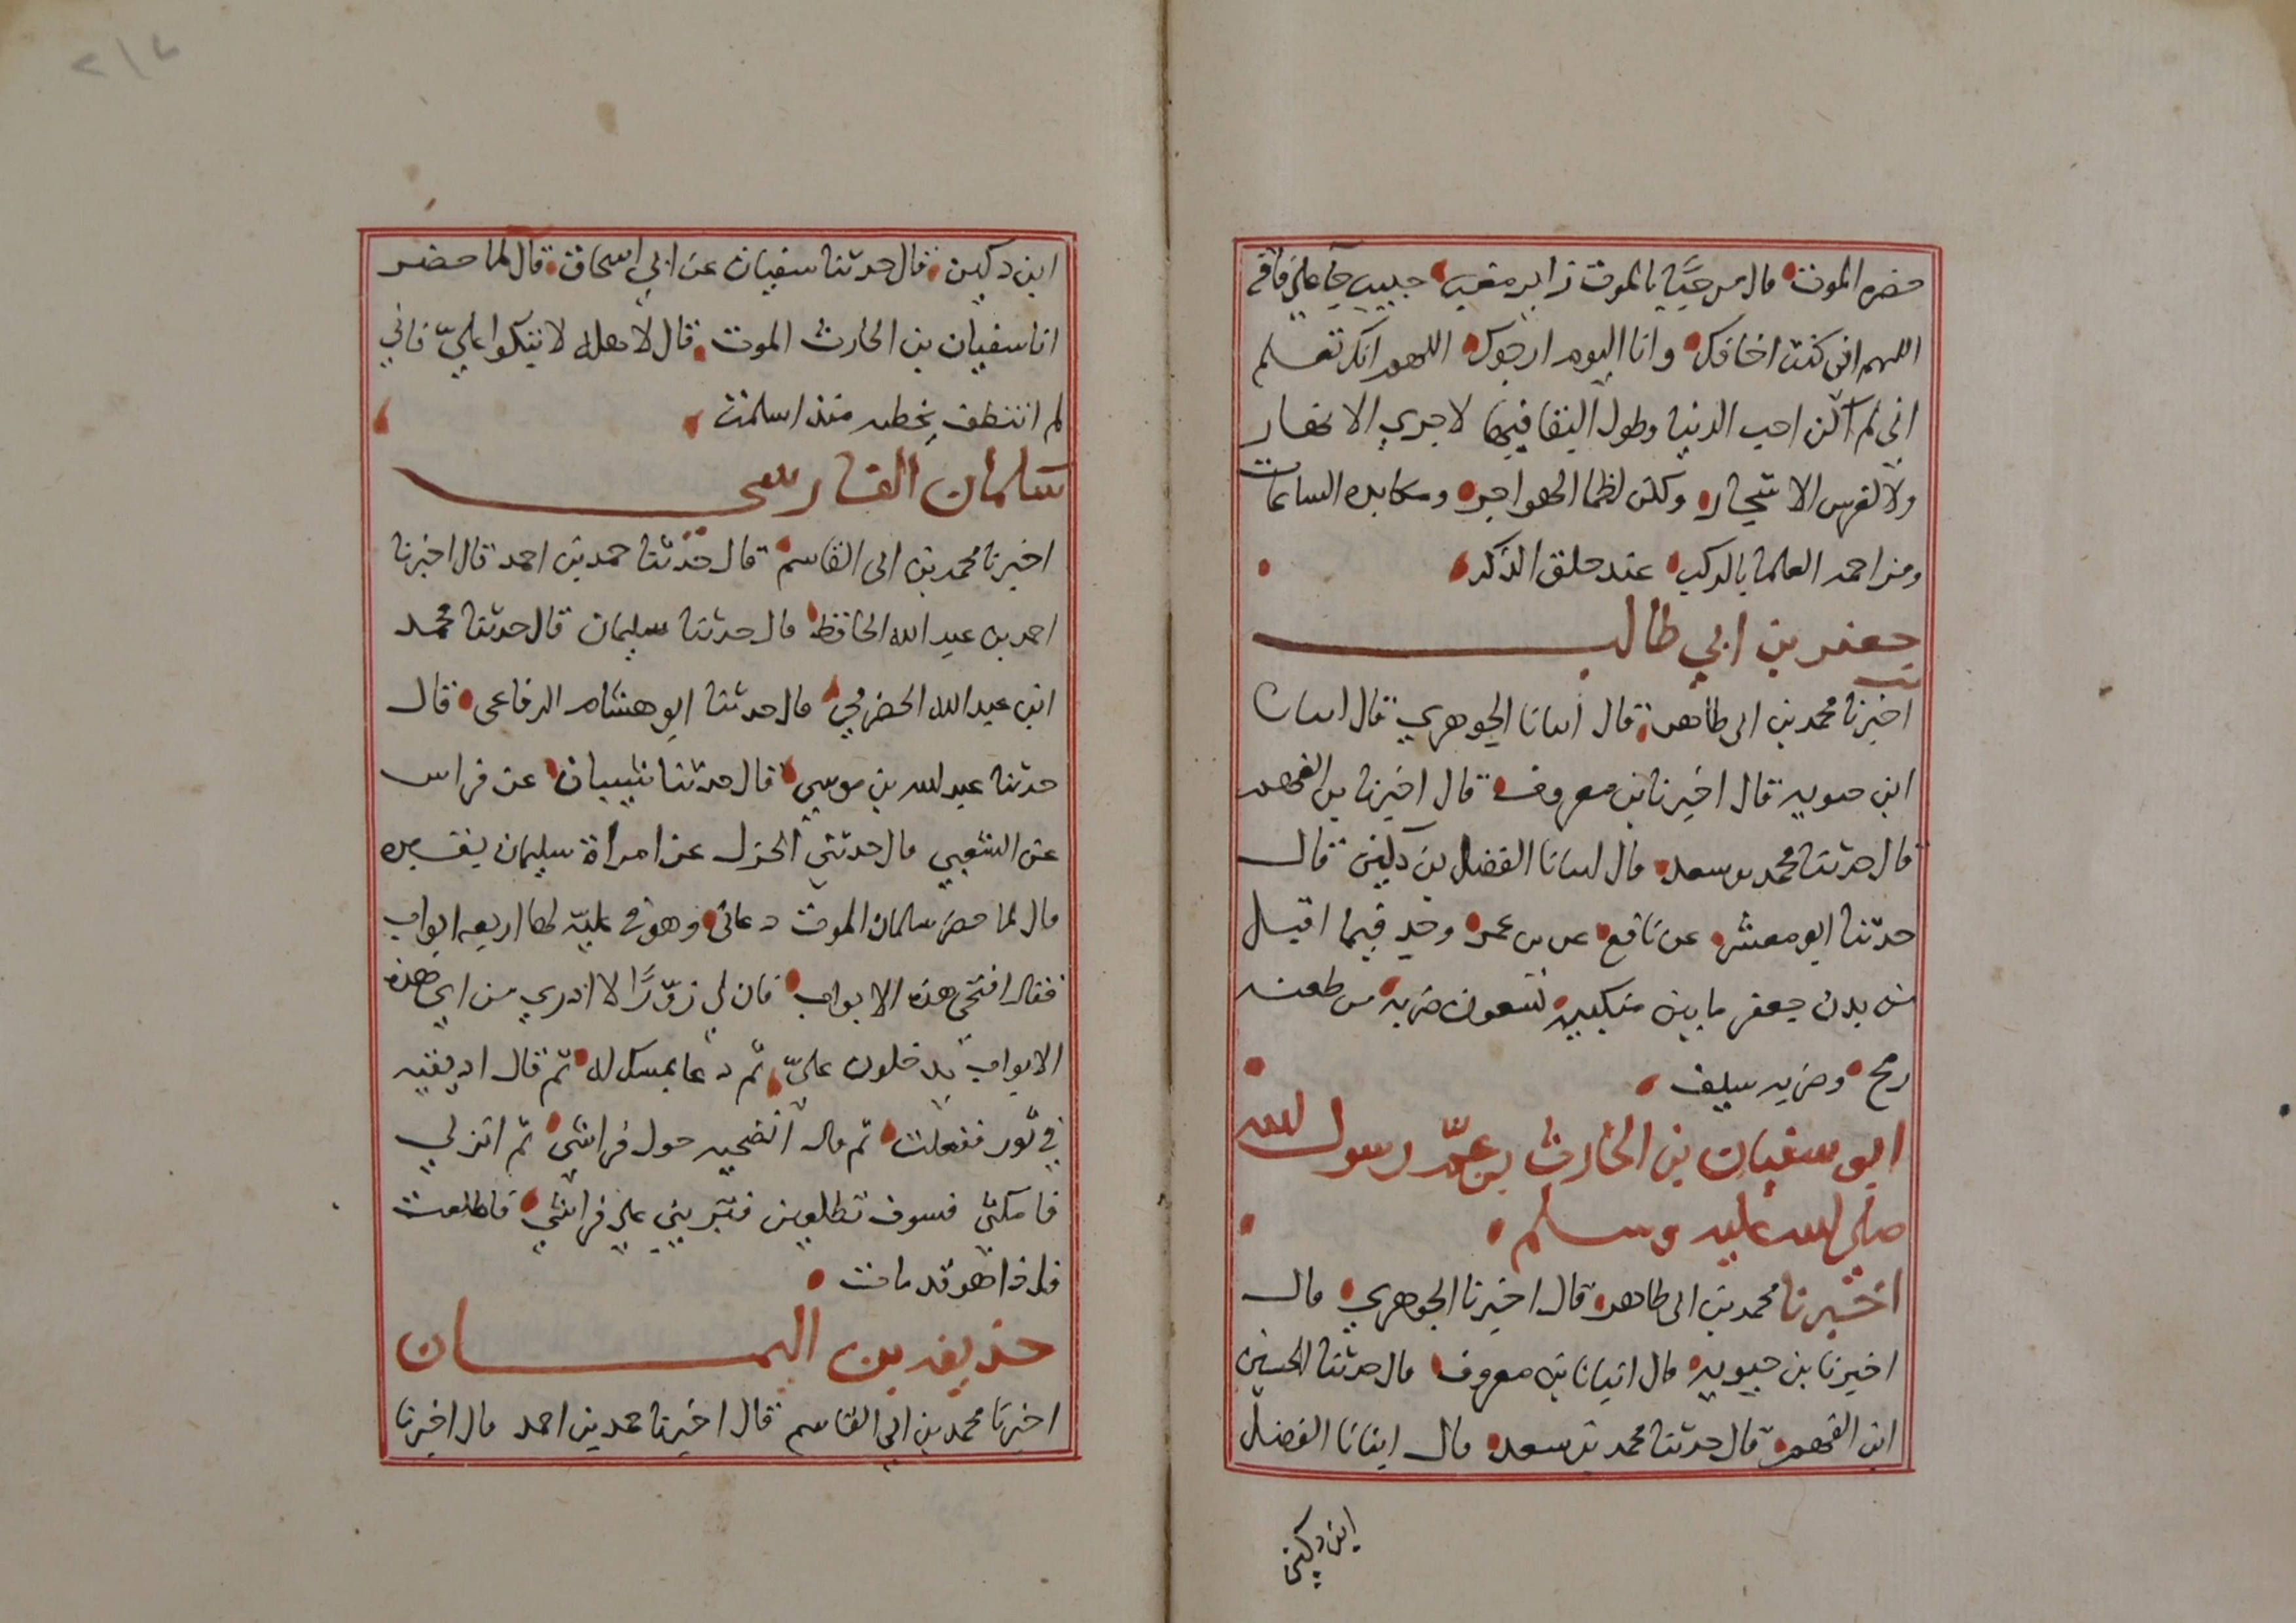 حضره الموت قال مرحبًا بالموت زاير مغيب حبيب جآ علي فاقه
اللهم اني كنت اخافك وانا اليوم ارجوك اللهم انك تعلم
اني لم اكن احب الدنيا وطول البقا فيها لاجري الانهار
ولا لغرس الاشجار ولكن لظما الهواجر ومكابده الساعات
ومزاحمه العلما بالركب عند حلق الذكر
جعفر بن ابي طالب
اخبرنا محمد بن ابى طاهر قال انبانا الجوهري قال انبانا
ابن حيويه قال اخبرنا بن معروف قال اخبرنا بن الفهم
قال حدثنا محمد بن سعد قال انبانا الفضل بن دكين قال
حدثنا ابو معشر عن نافع عن بن عمر وجد فيما اقبل
من بدن جعفر ما بين منكبيه تسعون ضربه من طعنه
رمح وضربه سيف
ابو سفيان بن الحارث بن عمّ رسول الله
صلي الله عليه وسلم
اخبرنا محمد بن ابى طاهر قال اخبرنا الجوهري قال
اخبرنا بن حيويه قال انبانا بن معروف قال حدثنا الحسين
ابن الفهم قال حدثنا محمد بن سعد قال انبانا الفضل
ابن دكين
٢١٦
ابن دكين قال حدثنا سفيان عن ابي اسحاق قال لما حضر
ابا سفيان بن الحارث الموت قال لاهله لا تبكوا عليّ فاني
لم اتنطف بخطيه منذ اسلمت
سلمان الفارسى
اخبرنا محمد بن ابى القاسم قال حدثنا حمد بن احمد قال اخبرنا
احمد بن عبد الله الحافظ قال حدثنا سليمان قال حدثنا محمد
ابن عبد الله الحضرمي قال حدثنا ابو هشام الرفاعى قال
حدثنا عبد الله بن موسي قال حدثنا شيبان عن فراس
عن الشعبي قال حدثني الجزل عن امراة سليمان بقيره
قال لما حضر سلمان الموت دعانى وهو في عليّه لها اربعه ابواب
فقال افتحى هذه الابواب فان لي زوّرًا لا ادري من اي هذه
الابواب يدخلون عليّ ثم دعا بمسك له ثم قال اديفيه
في تور ففعلت ثم قال انضحيه حول فراشى ثم انزلي
فامكثي فسوف تطلعين فتريني علي فراشي فاطلعت
فاذا هو قد مات
حذيفه بن اليمان
اخبرنا محمد بن ابي القاسم قال اخبرنا حمد بن احمد قال اخبرنا